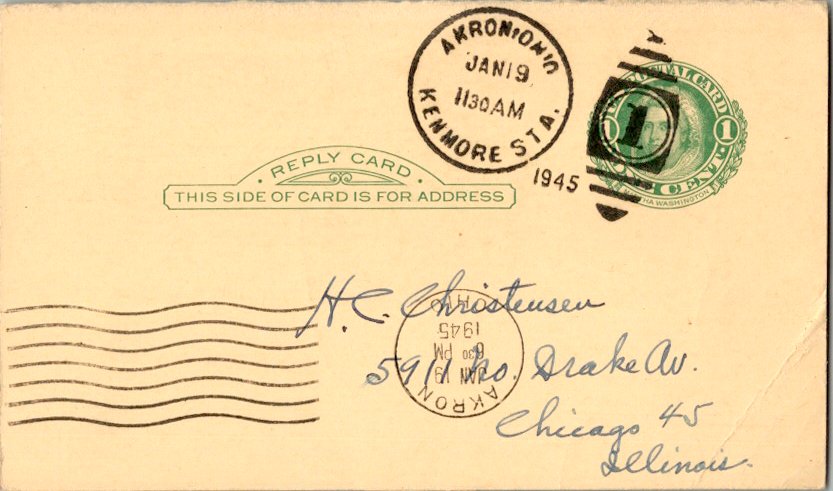 AKRON, OHIO
JAN 19
11 30 AM
KENMORE STA.
1945
1
POSTAL CARD
1 1
ONE CENT
MARTHA WASHINGTON
REPLY CARD
THIS SIDE OF CARD IS FOR ADDRESS
H. C. Christensen
5911 No. Drake Av.
Chicago 45
Illinois.
AKRON
JAN 19
6 30 PM
1945
OHIO